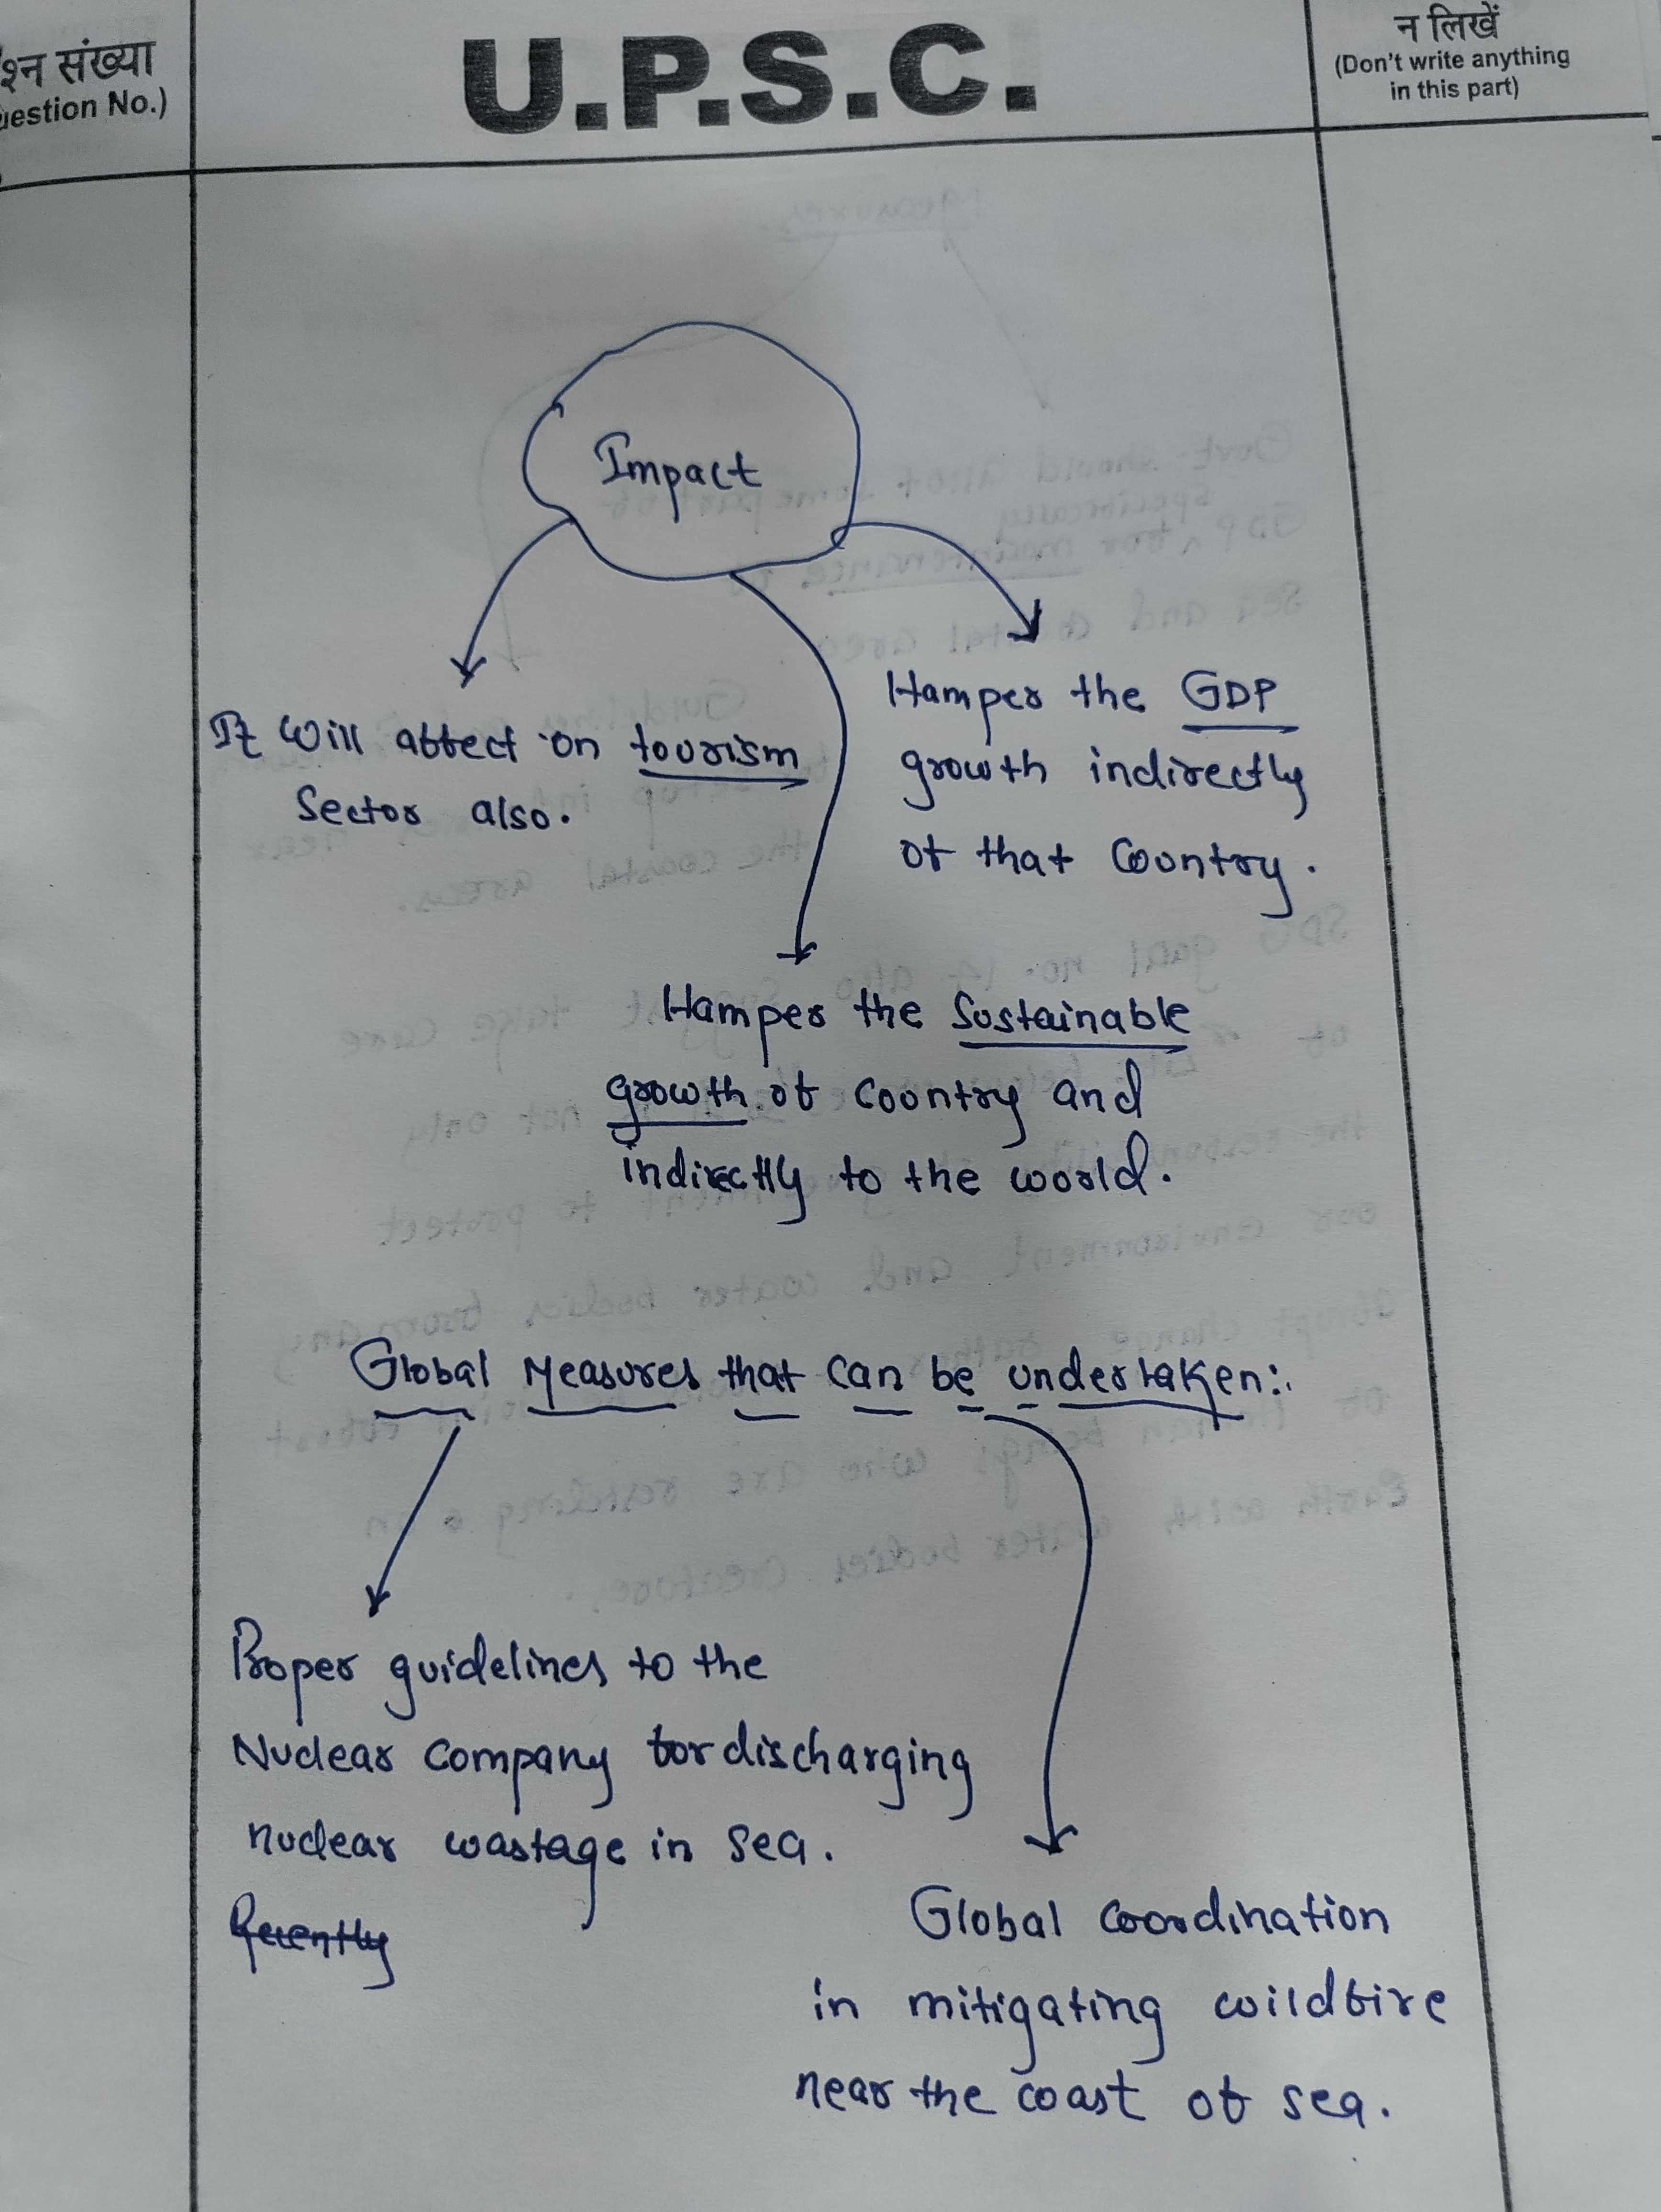 श्न संख्या
uestion No.)
U.P.S.C.
न लिखें
(Don't write anything
in this part)
Impact
It will affect on tourism
Sector also.
Hamper the GDP
growth indirectly
of that Country.
Hamper the Sustainable
growth of country and
indirectly to the world.
Global Measures that can be undertaken:
Proper guidelines to the
Nuclear company for discharging
nuclear wastage in sea.
Recently
Global coordination
in mitigating wildfire
near the coast of sea.